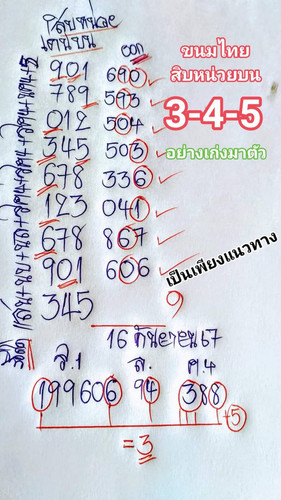 สิบหน่วย
เด่นบน ออก
ขนมไทย
สิบหน่วยบน
3-4-5
อย่างเก่งมาตัว
901 690
789 593
012 504
345 503
678 336
123 041
678 867
901 606
345 9
เป็นเพียงแนวทาง
16 กันยายน 67
จ.1 ส. พ.4
199606 94 388
+5
=3